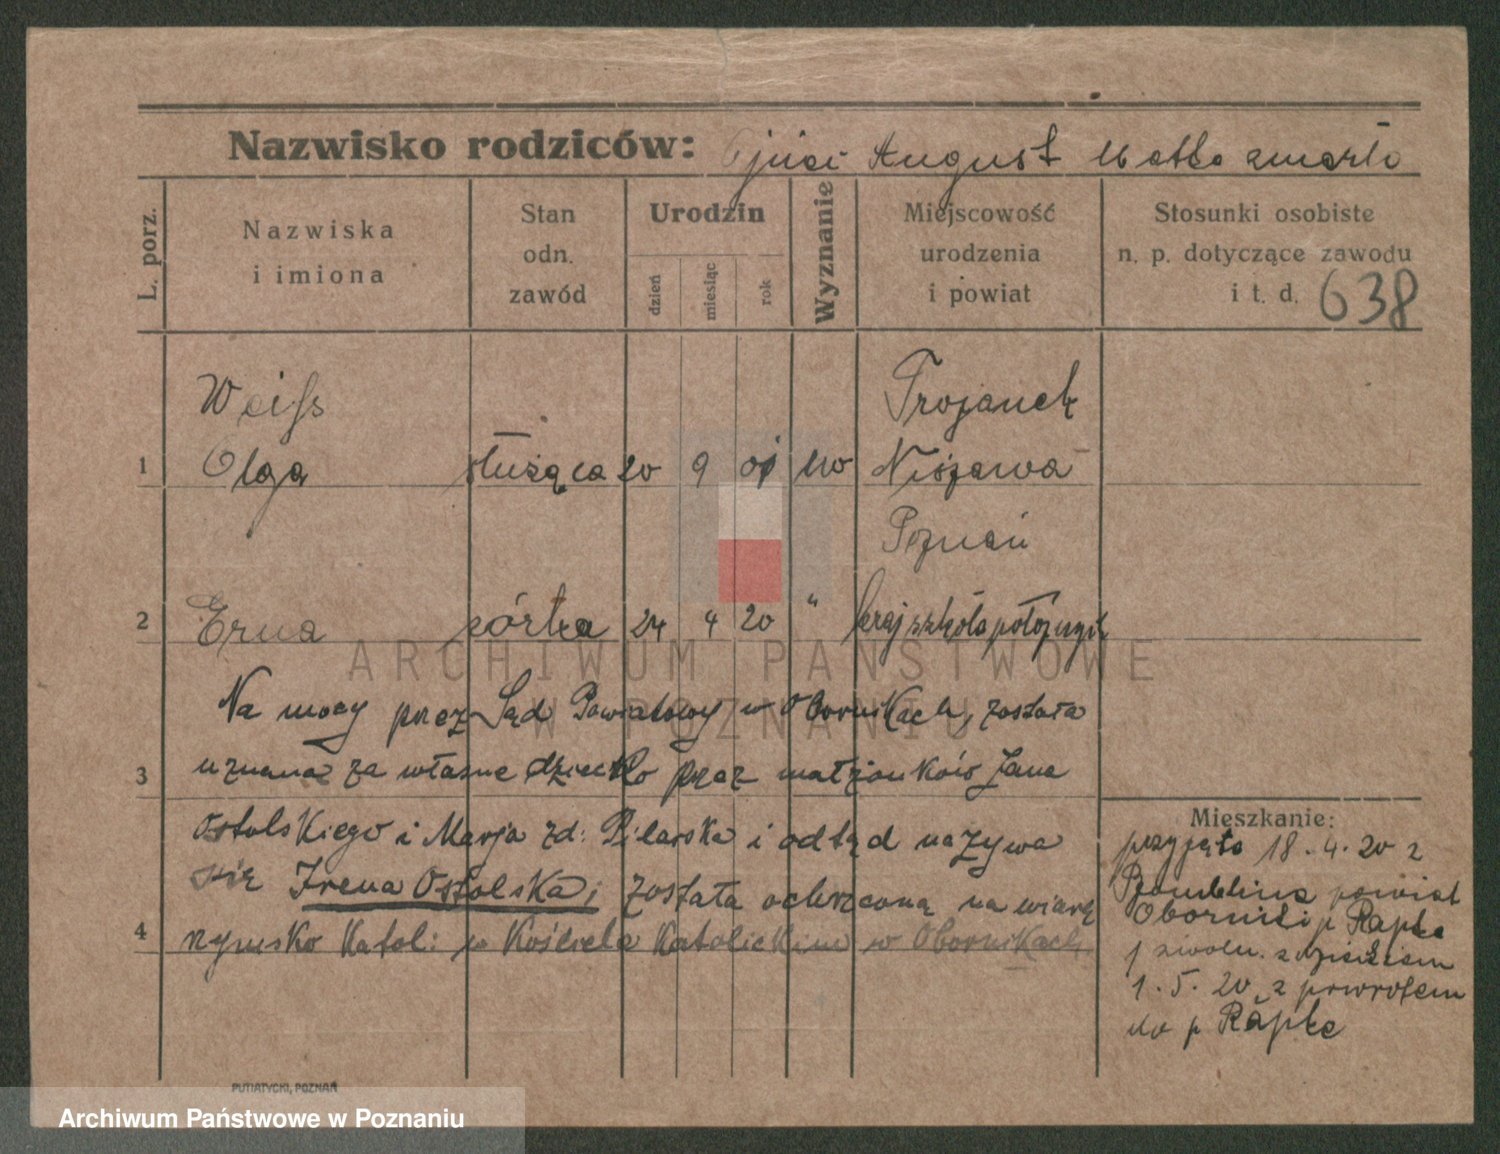 Nazwisko rodziców: Ojciec August Matka zmarła
L. porz.
Nazwiska
i imiona
Stan
odn.
zawód
Urodzin
dzień
miesiąc
rok
Wyznanie
Miejscowość
urodzenia
i powiat
Stosunki osobiste
n. p. dotyczące zawodu
i t. d. 638
Weiss Trojanek
1 Olga służąca 20 9 01 Niszawa
Poznań
2 Erna córka 24 4 20 " kraj szkoła położnych
Na mocy przez Sąd Powiatowy w Obornikach, została
3 uznana za własne dziecko przez małżonków Jana
Ostolskiego i Marja zd: Pilarska i odtąd nazywa
się Irena Ostolska; została ochrzconą na wiarę
4 rzymsko Katol: w Kościele Katolickim w Obornikach
Mieszkanie:
przyjęto 18.4.20 z
powiat
Oborniki p Rapke
zwoln. z dzieckiem
1.5.20 z powrotem
do p Rapke
PUTIATYCKI, POZNAŃ
ARCHIWUM PAŃSTWOWE
W POZNANIU
Archiwum Państwowe w Poznaniu